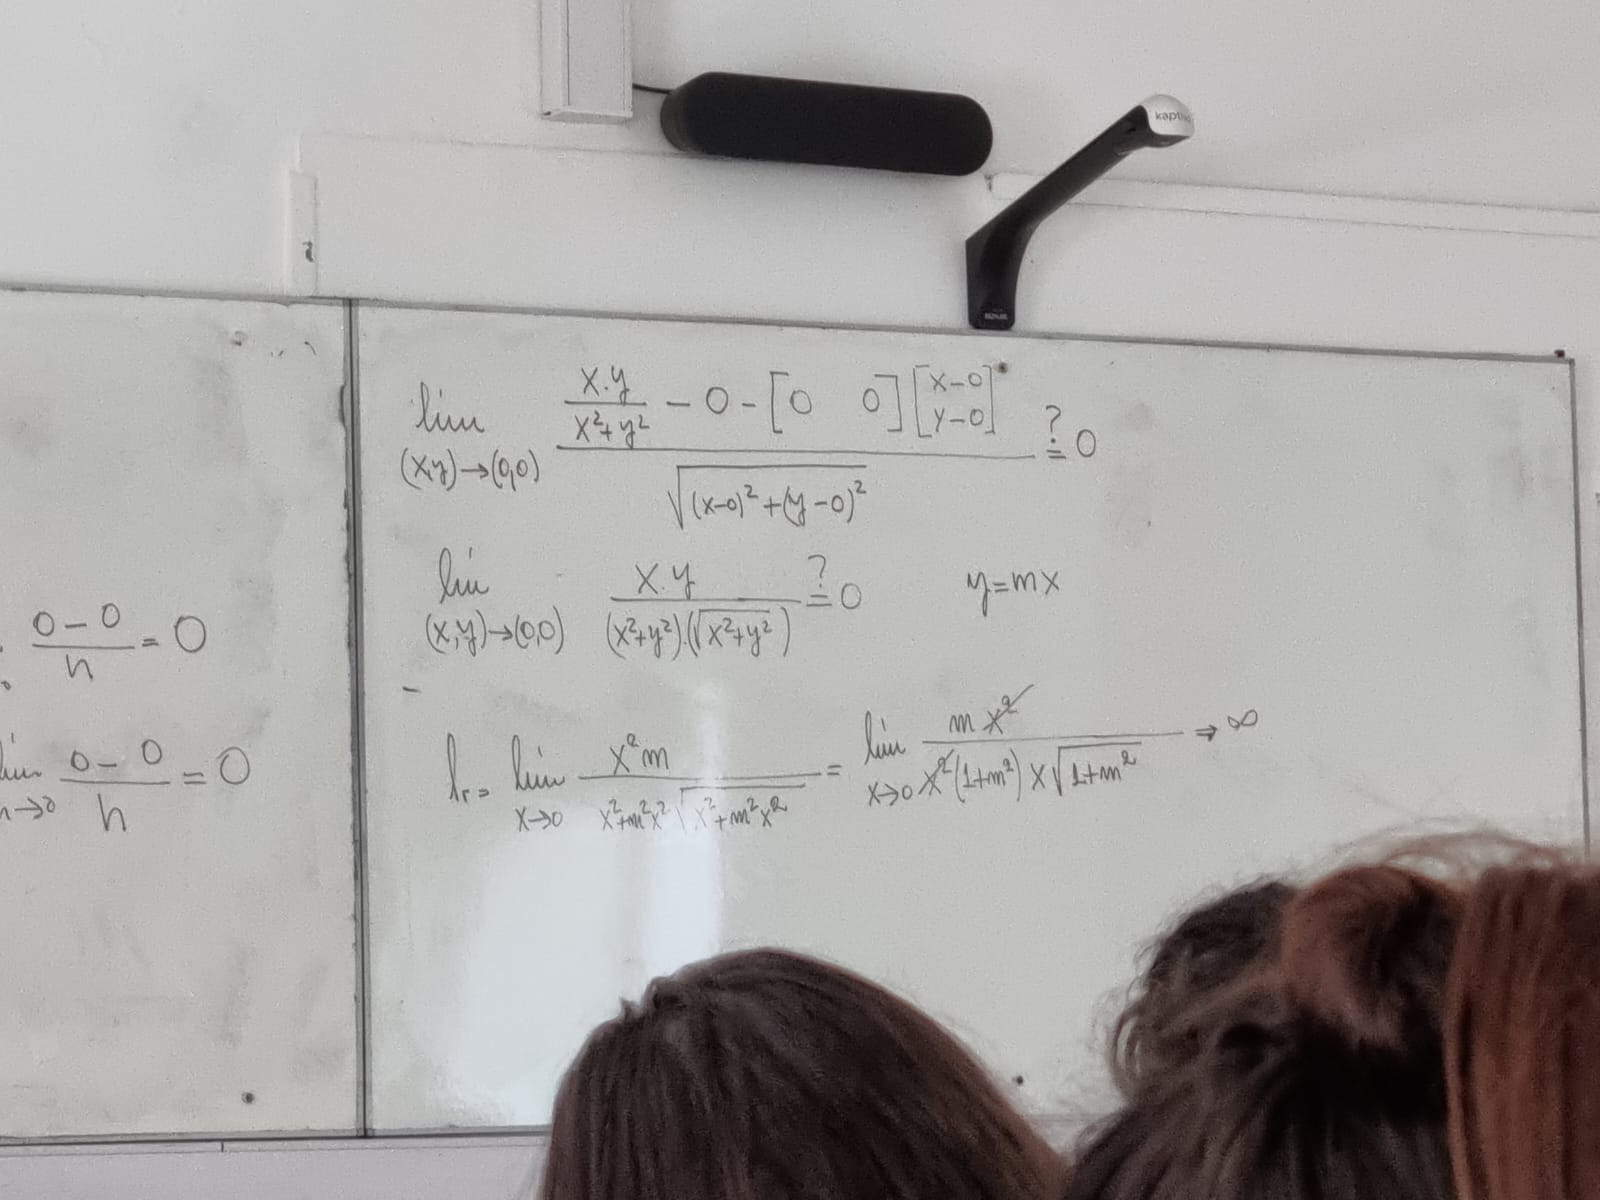 kapti
0-0/h = 0
lim h→0 0-0/h = 0
lim (x,y)→(0,0) (x.y/(x²+y²) - 0 - [0 0] [x-0 y-0]) / √((x-0)²+(y-0)²) ?= 0
lim (x,y)→(0,0) x.y / (x²+y²).(√(x²+y²)) ?= 0 y=mx
lr = lim x→0 x²m / x²+m²x² √(x²+m²x²) = lim x→0 mx² / x²(1+m²) x√(1+m²) ⇒ ∞